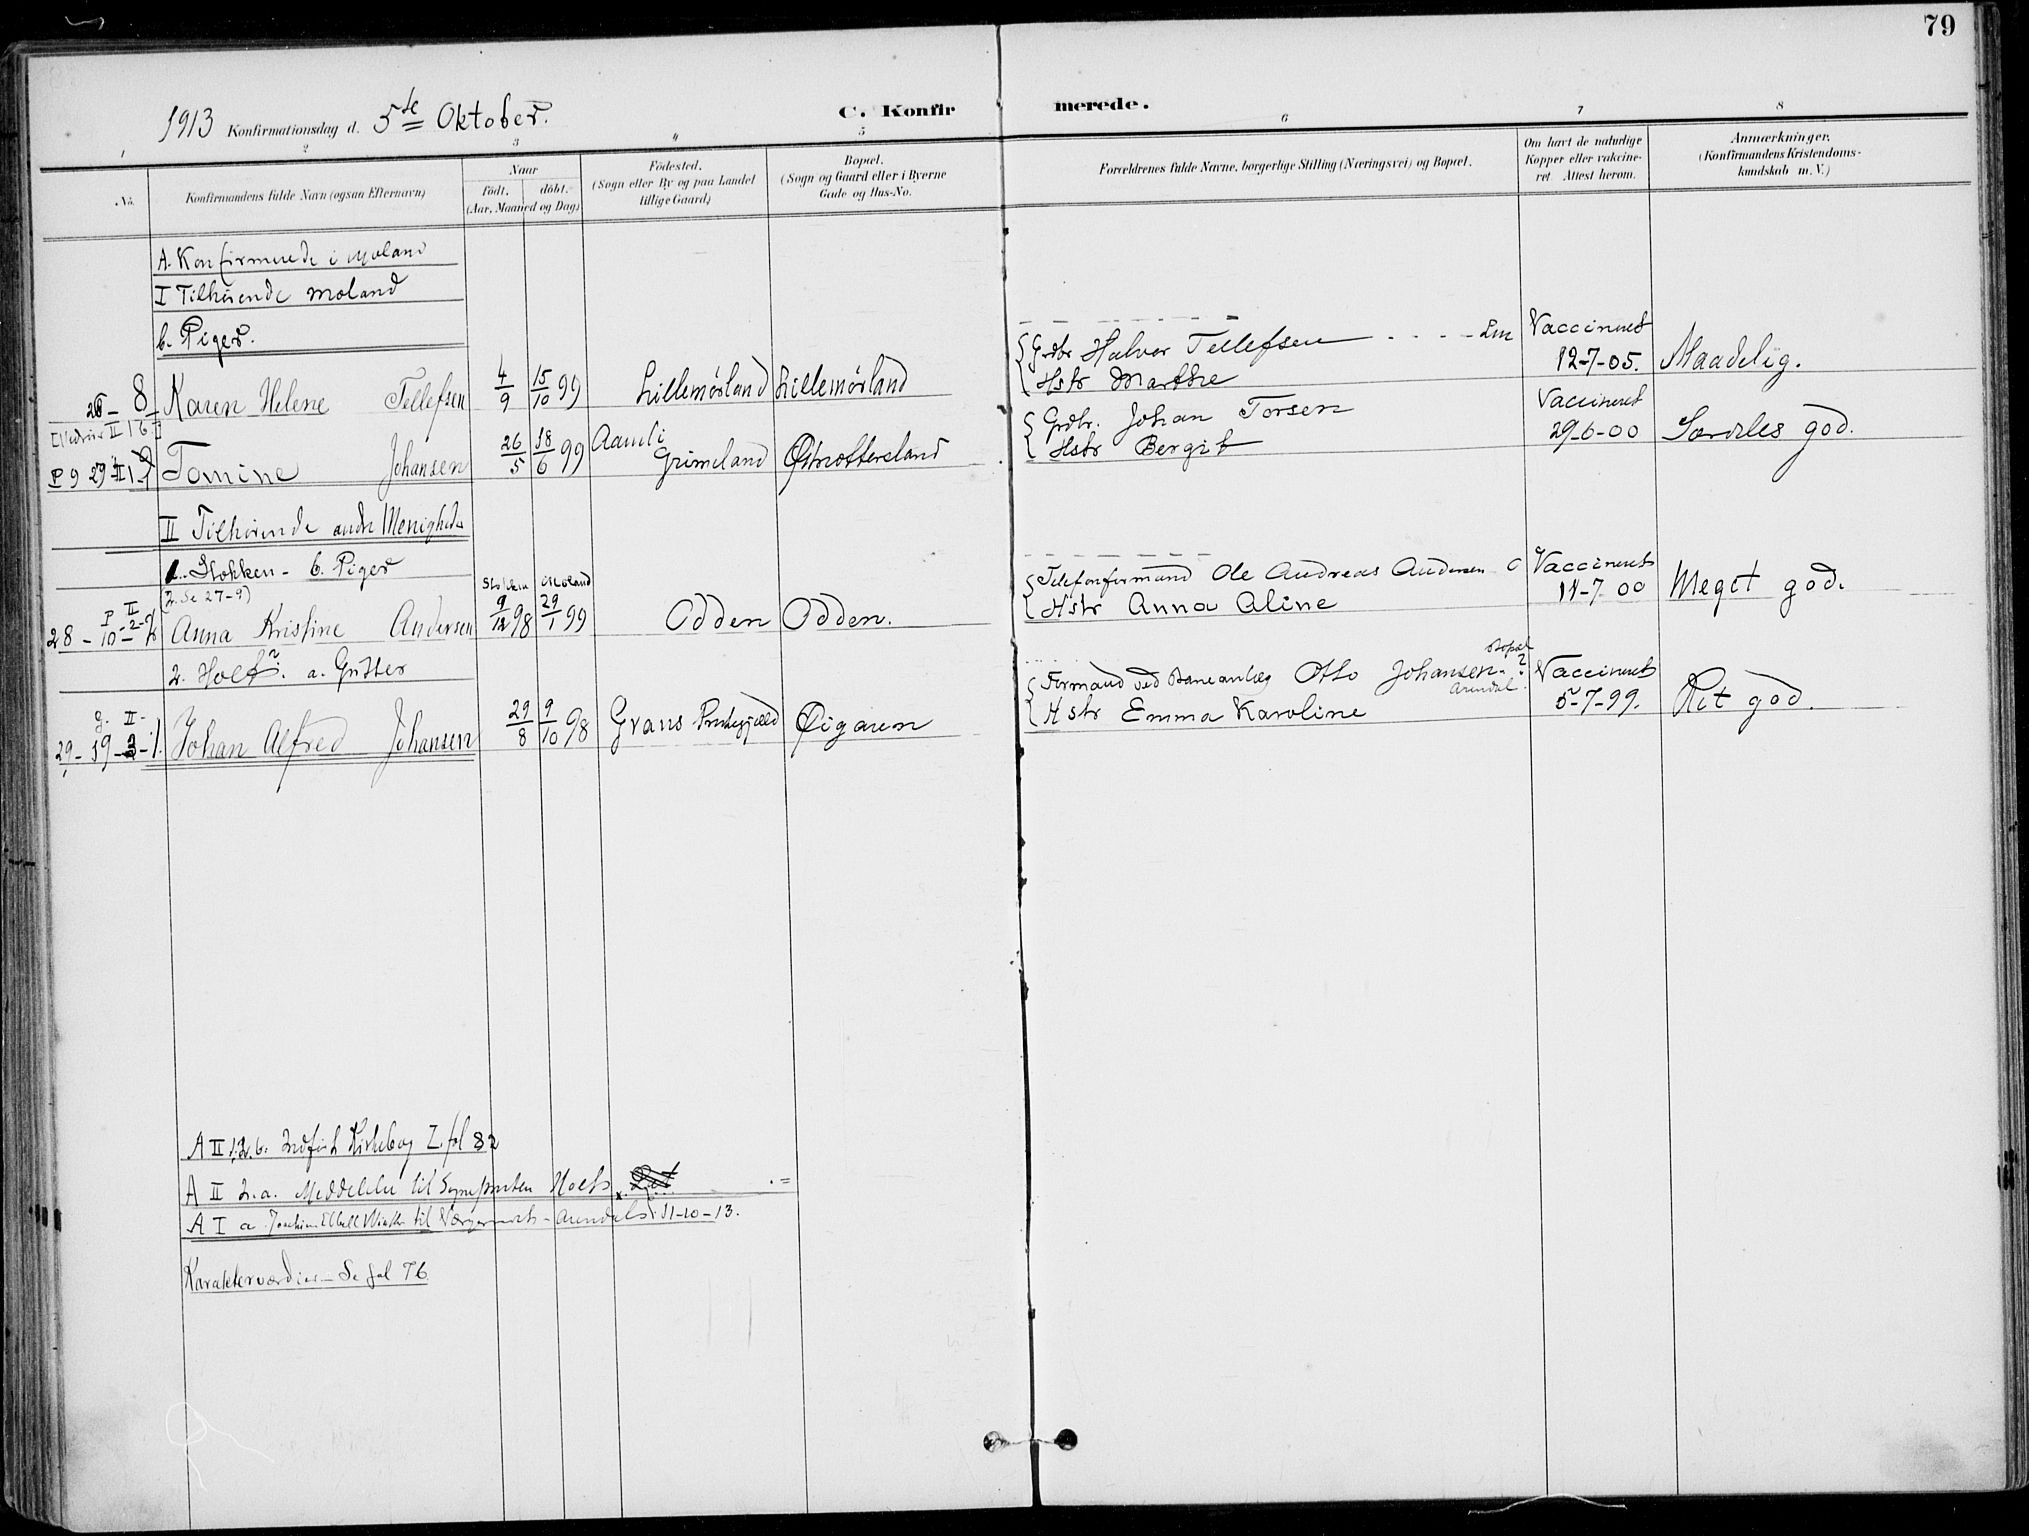 79
1913 Konfirmationsdag d. 5te Oktober.
C. Konfirmerede.
1 2 3 4 5 6 7 8
No.
Konfirmandens fulde Navn (ogsaa Efternavn)
Naar
födt. döbt.
(Aar, Maaned og Dag)
Födested.
(Sogn eller By og paa Landet
tillige Gaard)
Bopæl.
(Sogn og Gaard eller i Byerne
Gade og Hus-No.
Forældrenes fulde Navne, borgerlige Stilling (Næringsvei) og Bopæl.
Om havt de naturlige
Kopper eller vakcine-
ret. Attest herom.
Anmærkninger.
(Konfirmandens Kristendoms-
kundskab m. V.)
A. Konfirmerede i Moland
I Tilhörende Moland
b. Piger.
8 Karen Helene Tellefsen 4/9 15/10 99 Lillemörland Lillemörland
Grdbr Halvor Tellefsen
Hstr Marthe
Vaccineret
12-7-05. Maadelig.
Tomine Johansen 26/5 18/6 99 Aamli
Grimeland
Grdbr. Johan Torsen
Hstr Bergit
Vaccineret
29-6-00 Særdeles god.
II Tilhörende andre Menigheder
1. Stokken - b. Piger
(2. Se 27-9)
Stokken Moland
28 - 10 - 2 Anna Kristine Andersen 9/12 98 29/1 99 Odden Odden.
Telefonformand Ole Andreas Andersen
Hstr Anna Aline
Vaccineret
11-7-00 Meget god.
2. Holt? a. Gutter
29 - 19 - 3 - 1. Johan Alfred Johansen 29/8 9/10 98 Grans Præstegjæld Øigaren
Bopæl ?
Formand ved Baneanlæg Otto Johansen
Arendal.
Hstr Emma Karoline
Vaccineret
5-7-99. Ret god.
A II 1.2.b. Indført Kirkebog Z. fol 82
A II 2.a. Meddelelse til Sognepresten Holt
A I a Joachim til Værgeraad - Arendal 11-10-13.
Karakterværdier - Se fol 76